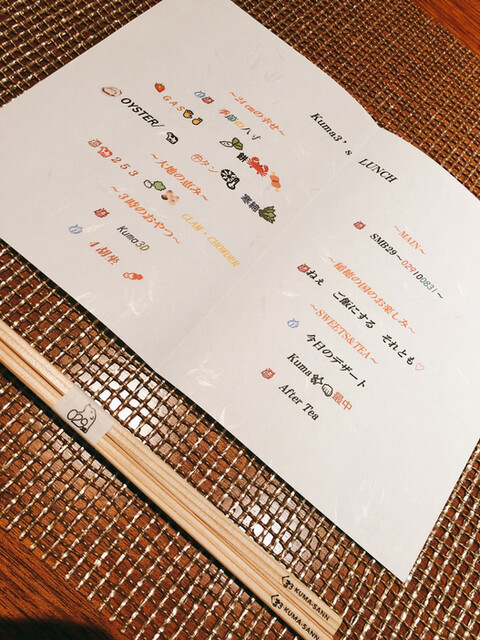 Kuma3’s LUNCH
~31㎝の幸せ~
季節の八寸
GAS
餅
OYSTER/
タン
寒締
~大地の恵み~
253
CLAM・CHOWDER
~3時のおやつ~
Kuma3D
4胡坐
~MAIN~
SMB29~029100831~
~植物の国のお楽しみ~
ねぇ ご飯にする それとも♡
~SWEETS&TEA~
今日のデザート
Kuma 最中
After Tea
KUMA-SANN
KUMA-SANN